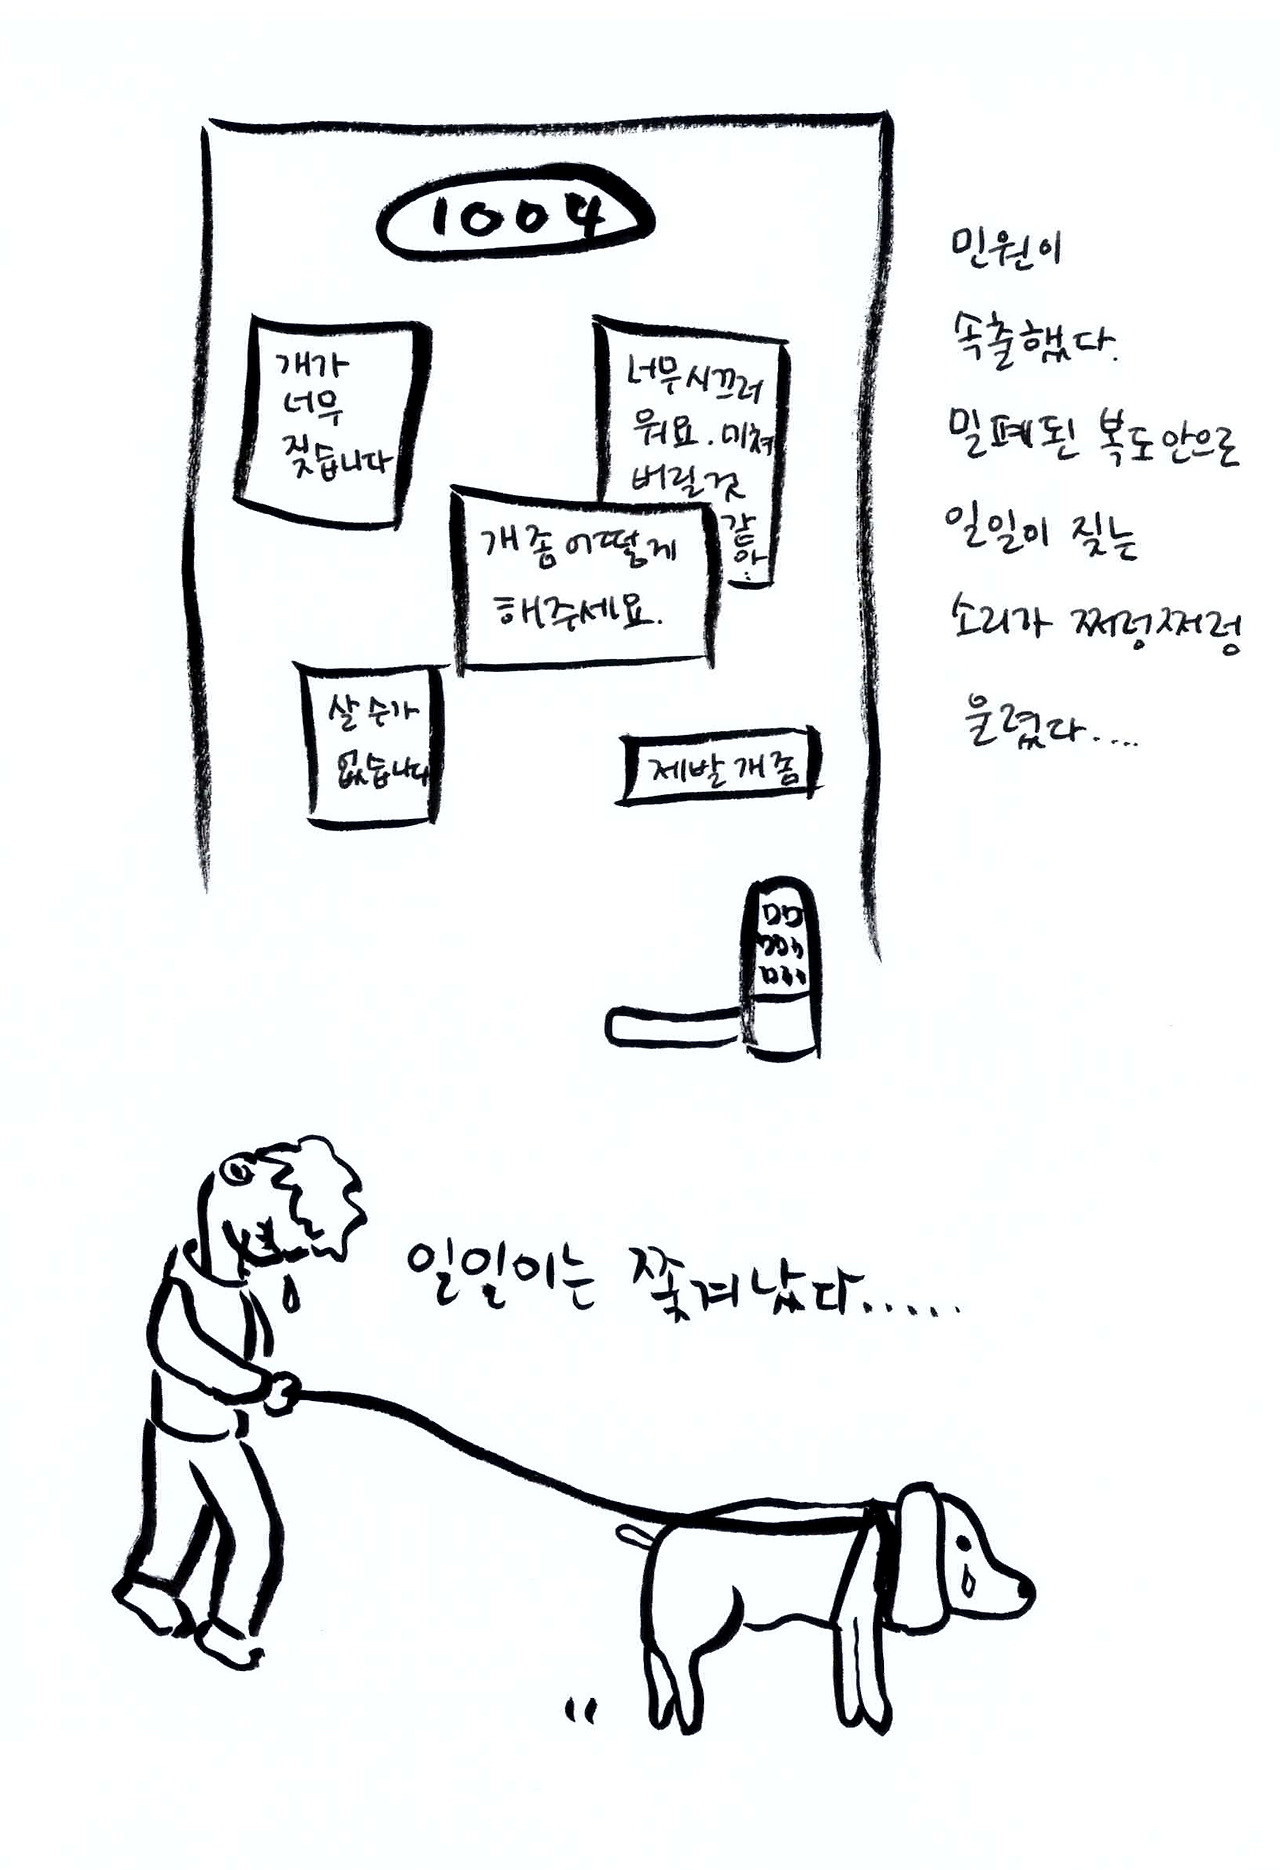 1004
개가
너무
짖습니다
너무시끄러
워요. 미쳐
버릴것
같아.
개좀어떻게
해주세요.
살수가
없습니다
제발개좀
민원이
속출했다.
밀폐된 복도안으로
일일이 짖는
소리가 쩌렁쩌렁
울렸다....
일일이는 쫓겨났다.....